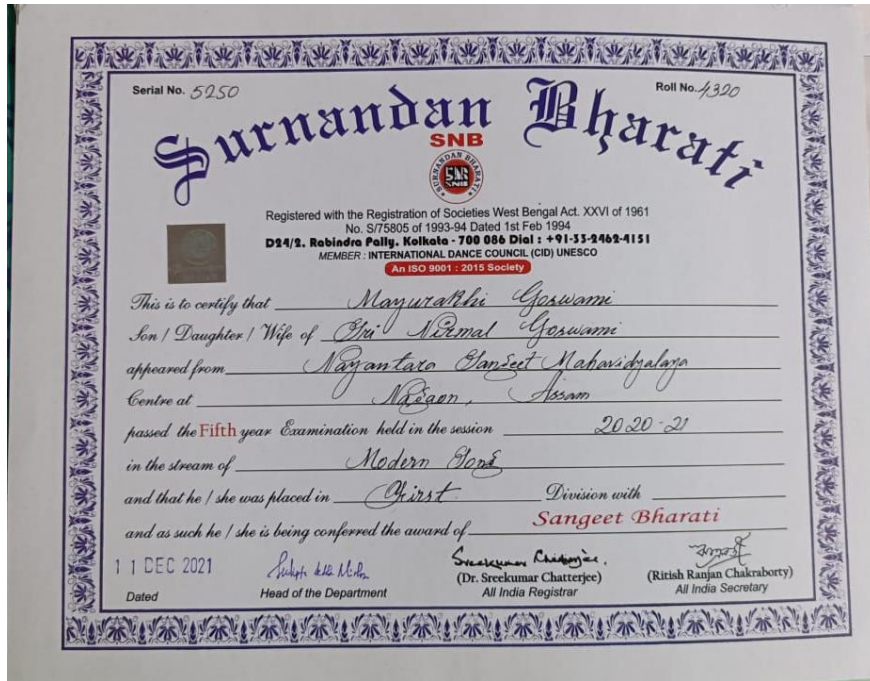 Serial No. 5250
Roll No. 4320
Surnandan Bharati
SNB
SURNANDAN BHARATI
SNB
Registered with the Registration of Societies West Bengal Act. XXVI of 1961
No. S/75805 of 1993-94 Dated 1st Feb 1994
D24/2, Rabindra Pally, Kolkata - 700 086 Dial : +91-33-2462-4151
MEMBER : INTERNATIONAL DANCE COUNCIL (CID) UNESCO
An ISO 9001 : 2015 Society
This is to certify that Mayurakhi Goswami
Son / Daughter / Wife of Sri Nirmal Goswami
appeared from Nayantara Sangeet Mahavidyalaya
Centre at Nagaon, Assam
passed the Fifth year Examination held in the session 2020-21
in the stream of Modern Song
and that he / she was placed in First Division with
and as such he / she is being conferred the award of Sangeet Bharati
11 DEC 2021
Dated
Head of the Department
Sreekumar Chatterjee.
(Dr. Sreekumar Chatterjee)
All India Registrar
(Ritish Ranjan Chakraborty)
All India Secretary